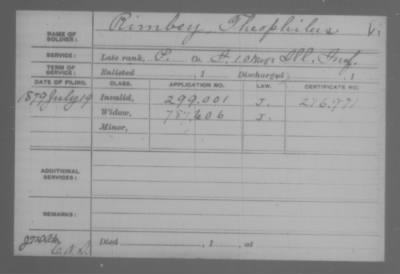 NAME OF SOLDIER: Rimbey, Theophilus
SERVICE: Late rank, Co. Reg't Ill. Inf.
TERM OF SERVICE: Enlisted , 1 Discharged , 1
DATE OF FILING. CLASS. APPLICATION NO. LAW. CERTIFICATE NO.
1879 July 19 Invalid, 299.001 J.
Widow, 787.606 J.
Minor,
ADDITIONAL SERVICES:
REMARKS:
Died , 1 , at